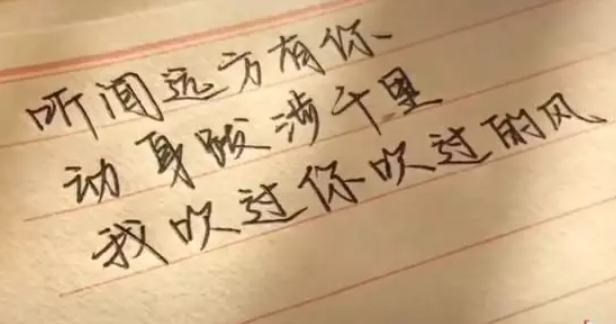 听闻远方有你、
动身跋涉千里
我吹过你吹过的风